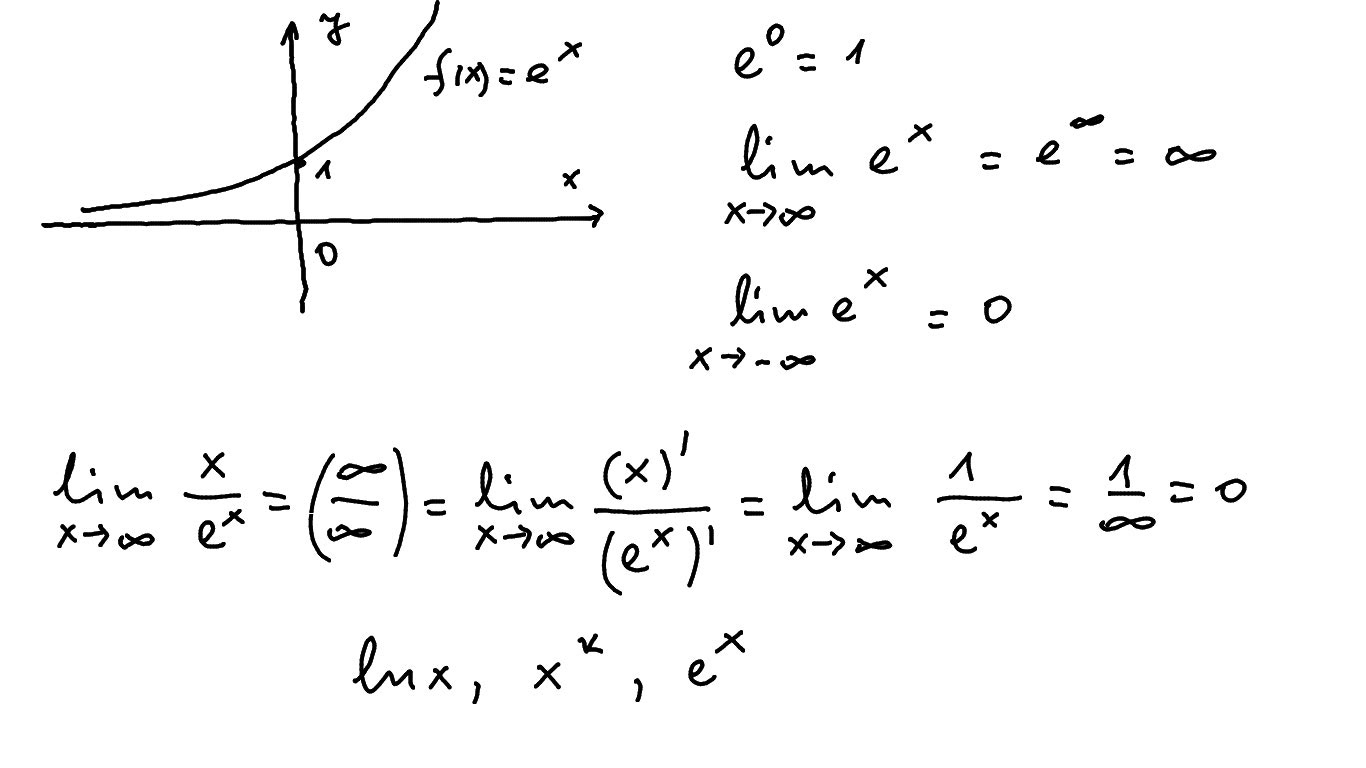 y
f(x) = e^x
1
x
0
e^0 = 1
lim x→∞ e^x = e^∞ = ∞
lim x→-∞ e^x = 0
lim x→∞ x/e^x = (∞/∞) = lim x→∞ (x)'/(e^x)' = lim x→∞ 1/e^x = 1/∞ = 0
ln x, x^, e^x